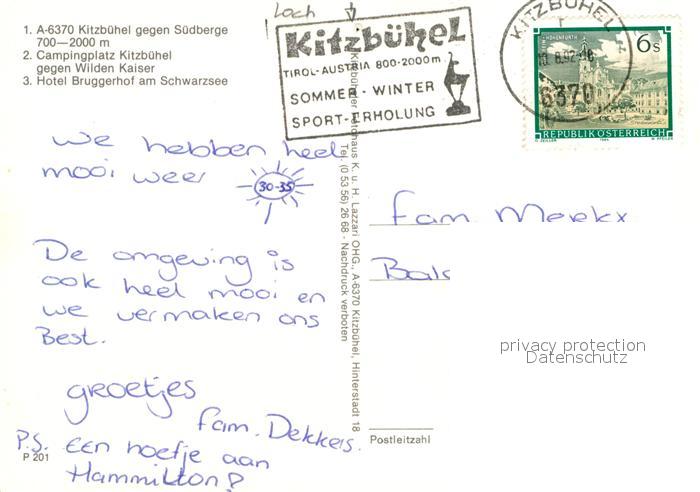 1. A-6370 Kitzbühel gegen Südberge
700—2000 m
2. Campingplatz Kitzbühel
gegen Wilden Kaiser
3. Hotel Bruggerhof am Schwarzsee
Loch
Kitzbühel
TIROL-AUSTRIA 800-2000m.
SOMMER - WINTER
SPORT-ERHOLUNG
KITZBÜHEL
6370
6 S
REPUBLIK ÖSTERREICH
We hebben heel
mooi weer
30-35
De omgeving is
ook heel mooi en
we vermaken ons
Best.
groetjes
fam. Dekkers.
P.S. Een hoefje aan
Hammilton?
P 201
Kitzbüheler Fotohaus K. u. H. Lazzari OHG., A-6370 Kitzbühel, Hinterstadt 18
Tel. (0 53 56) 26 68 - Nachdruck verboten
fam Merkx
privacy protection
Datenschutz
Postleitzahl